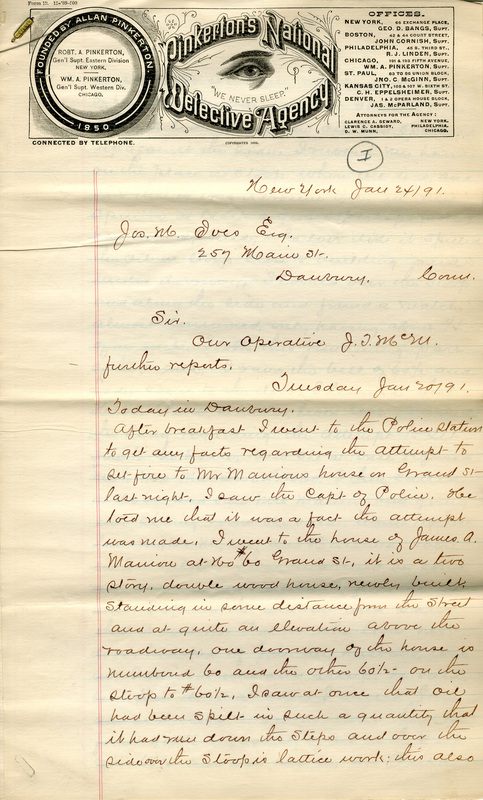 Form 15. 15-'89-500
FOUNDED BY ALLAN PINKERTON.
1850
ROBT. A PINKERTON,
Gen'l Supt. Eastern Division
NEW YORK.
WM. A. PINKERTON,
Gen'l Supt. Western Div.
CHICAGO.
Pinkerton's National
"WE NEVER SLEEP."
Detective Agency
CONNECTED BY TELEPHONE.
OFFICES.
NEW YORK, 66 EXCHANGE PLACE,
GEO. D. BANGS, SUPT.
BOSTON, 42 & 43 COURT STREET,
JOHN CORNISH, SUPT.
PHILADELPHIA, 45 S. THIRD ST.,
R. J. LINDEN, SUPT.
CHICAGO, 191 & 193 FIFTH AVENUE,
WM. A. PINKERTON, SUPT.
ST. PAUL, UNION BLOCK,
JNO. C. McGINN, SUPT.
KANSAS CITY, 105 & 107 W. SIXTH ST.
C. H. EPPELSHEIMER, SUPT.
DENVER, 1 & 2 OPERA HOUSE BLOCK,
JAS. McPARLAND, SUPT.
ATTORNEYS FOR THE AGENCY:
CLARENCE A. SEWARD, NEW YORK.
LEWIS C. CASSIDY, PHILADELPHIA.
D. W. MUNN, CHICAGO.
I
New York Jan 24/91.
Jos. M. Ives Esq.
257 Main St.
Danbury, Conn.
Sir.
Our Operative J.T.McM.
further reports.
Tuesday Jan 20/91.
Today in Danbury.
After breakfast I went to the Police Station
to get any facts regarding the attempt to
set fire to Mr Manions house on Grand St
last night, I saw the Capt of Police, He
told me that it was a fact the attempt
was made, I went to the house of James A.
Manion at No #60 Grand St, it is a two
story, double wood house, newly built,
standing in some distance from the street
and at quite an elevation above the
roadway, one doorway of the house is
numbered 60 and the other 60½ on the
stoop to #60½, I saw at once that oil
had been spilt in such a quantity that
it had run down the steps and over the
side over the stoop is lattice work; this also